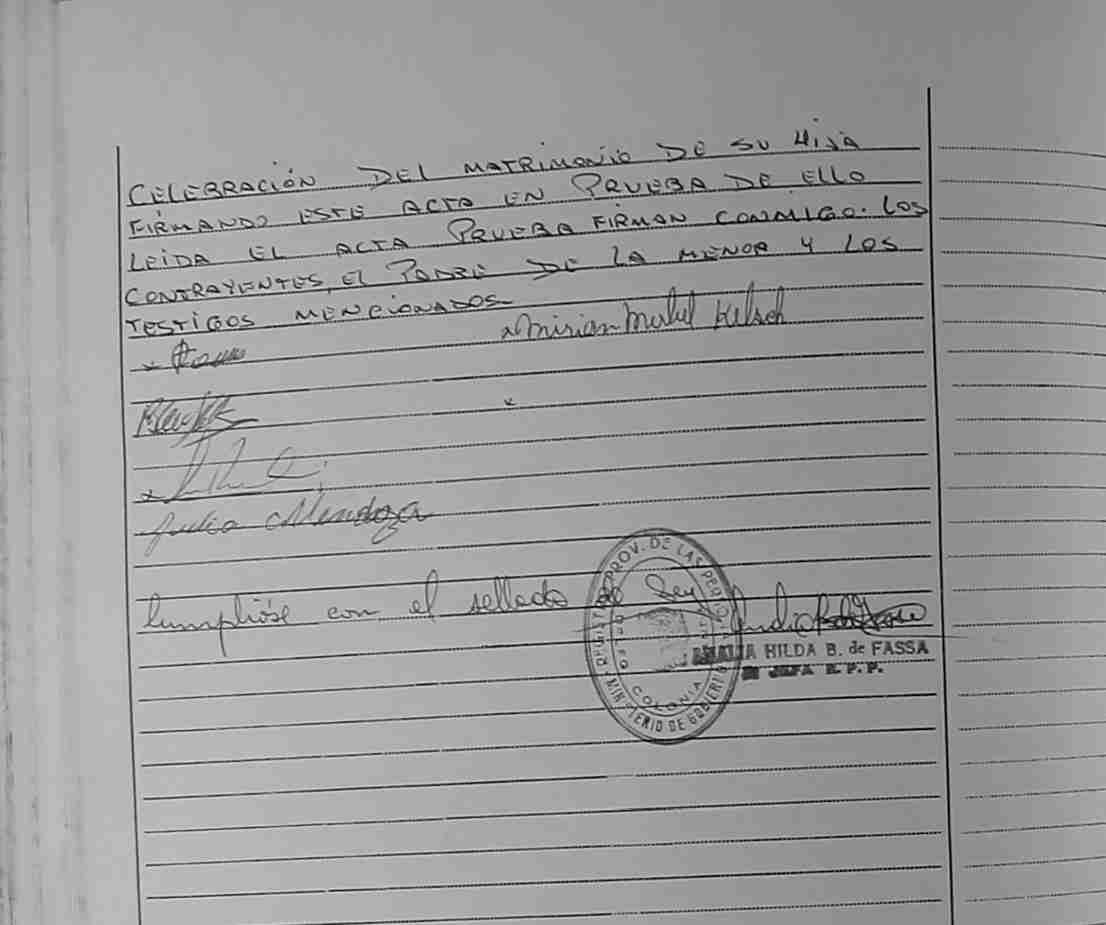 CELEBRACIÓN DEL MATRIMONIO DE SU HIJA
FIRMANDO ESTE ACTA EN PRUEBA DE ELLO
LEIDA EL ACTA PRUEBA FIRMAN CONMIGO. LOS
CONTRAYENTES, EL PADRE DE LA MENOR Y LOS
TESTIGOS MENCIONADOS
Mirian Mabel Kelsch
Julio Mendoza
Cumplióse con el sellado de Ley
PROV. DE LAS
MINISTERIO DE GOBIERNO
COLONIA
AMALIA HILDA B. de FASSA
JEFA R.P.P.